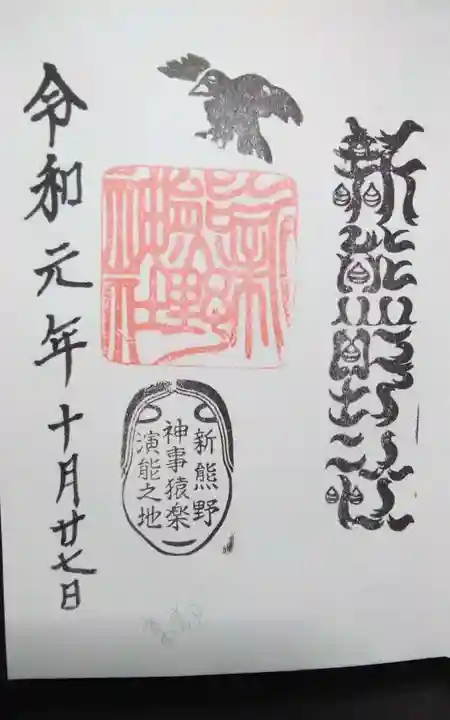 新熊野社
新熊野神社
新熊野
神事猿楽
演能之地
令和元年十月廿七日